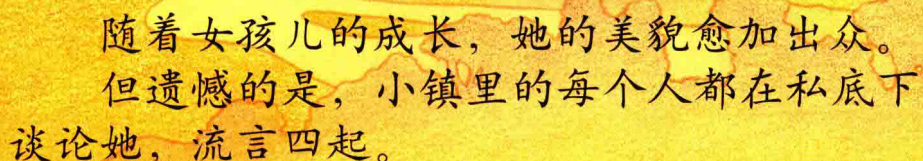 随着女孩儿的成长，她的美貌愈加出众。
但遗憾的是，小镇里的每个人都在私底下
谈论她，流言四起。